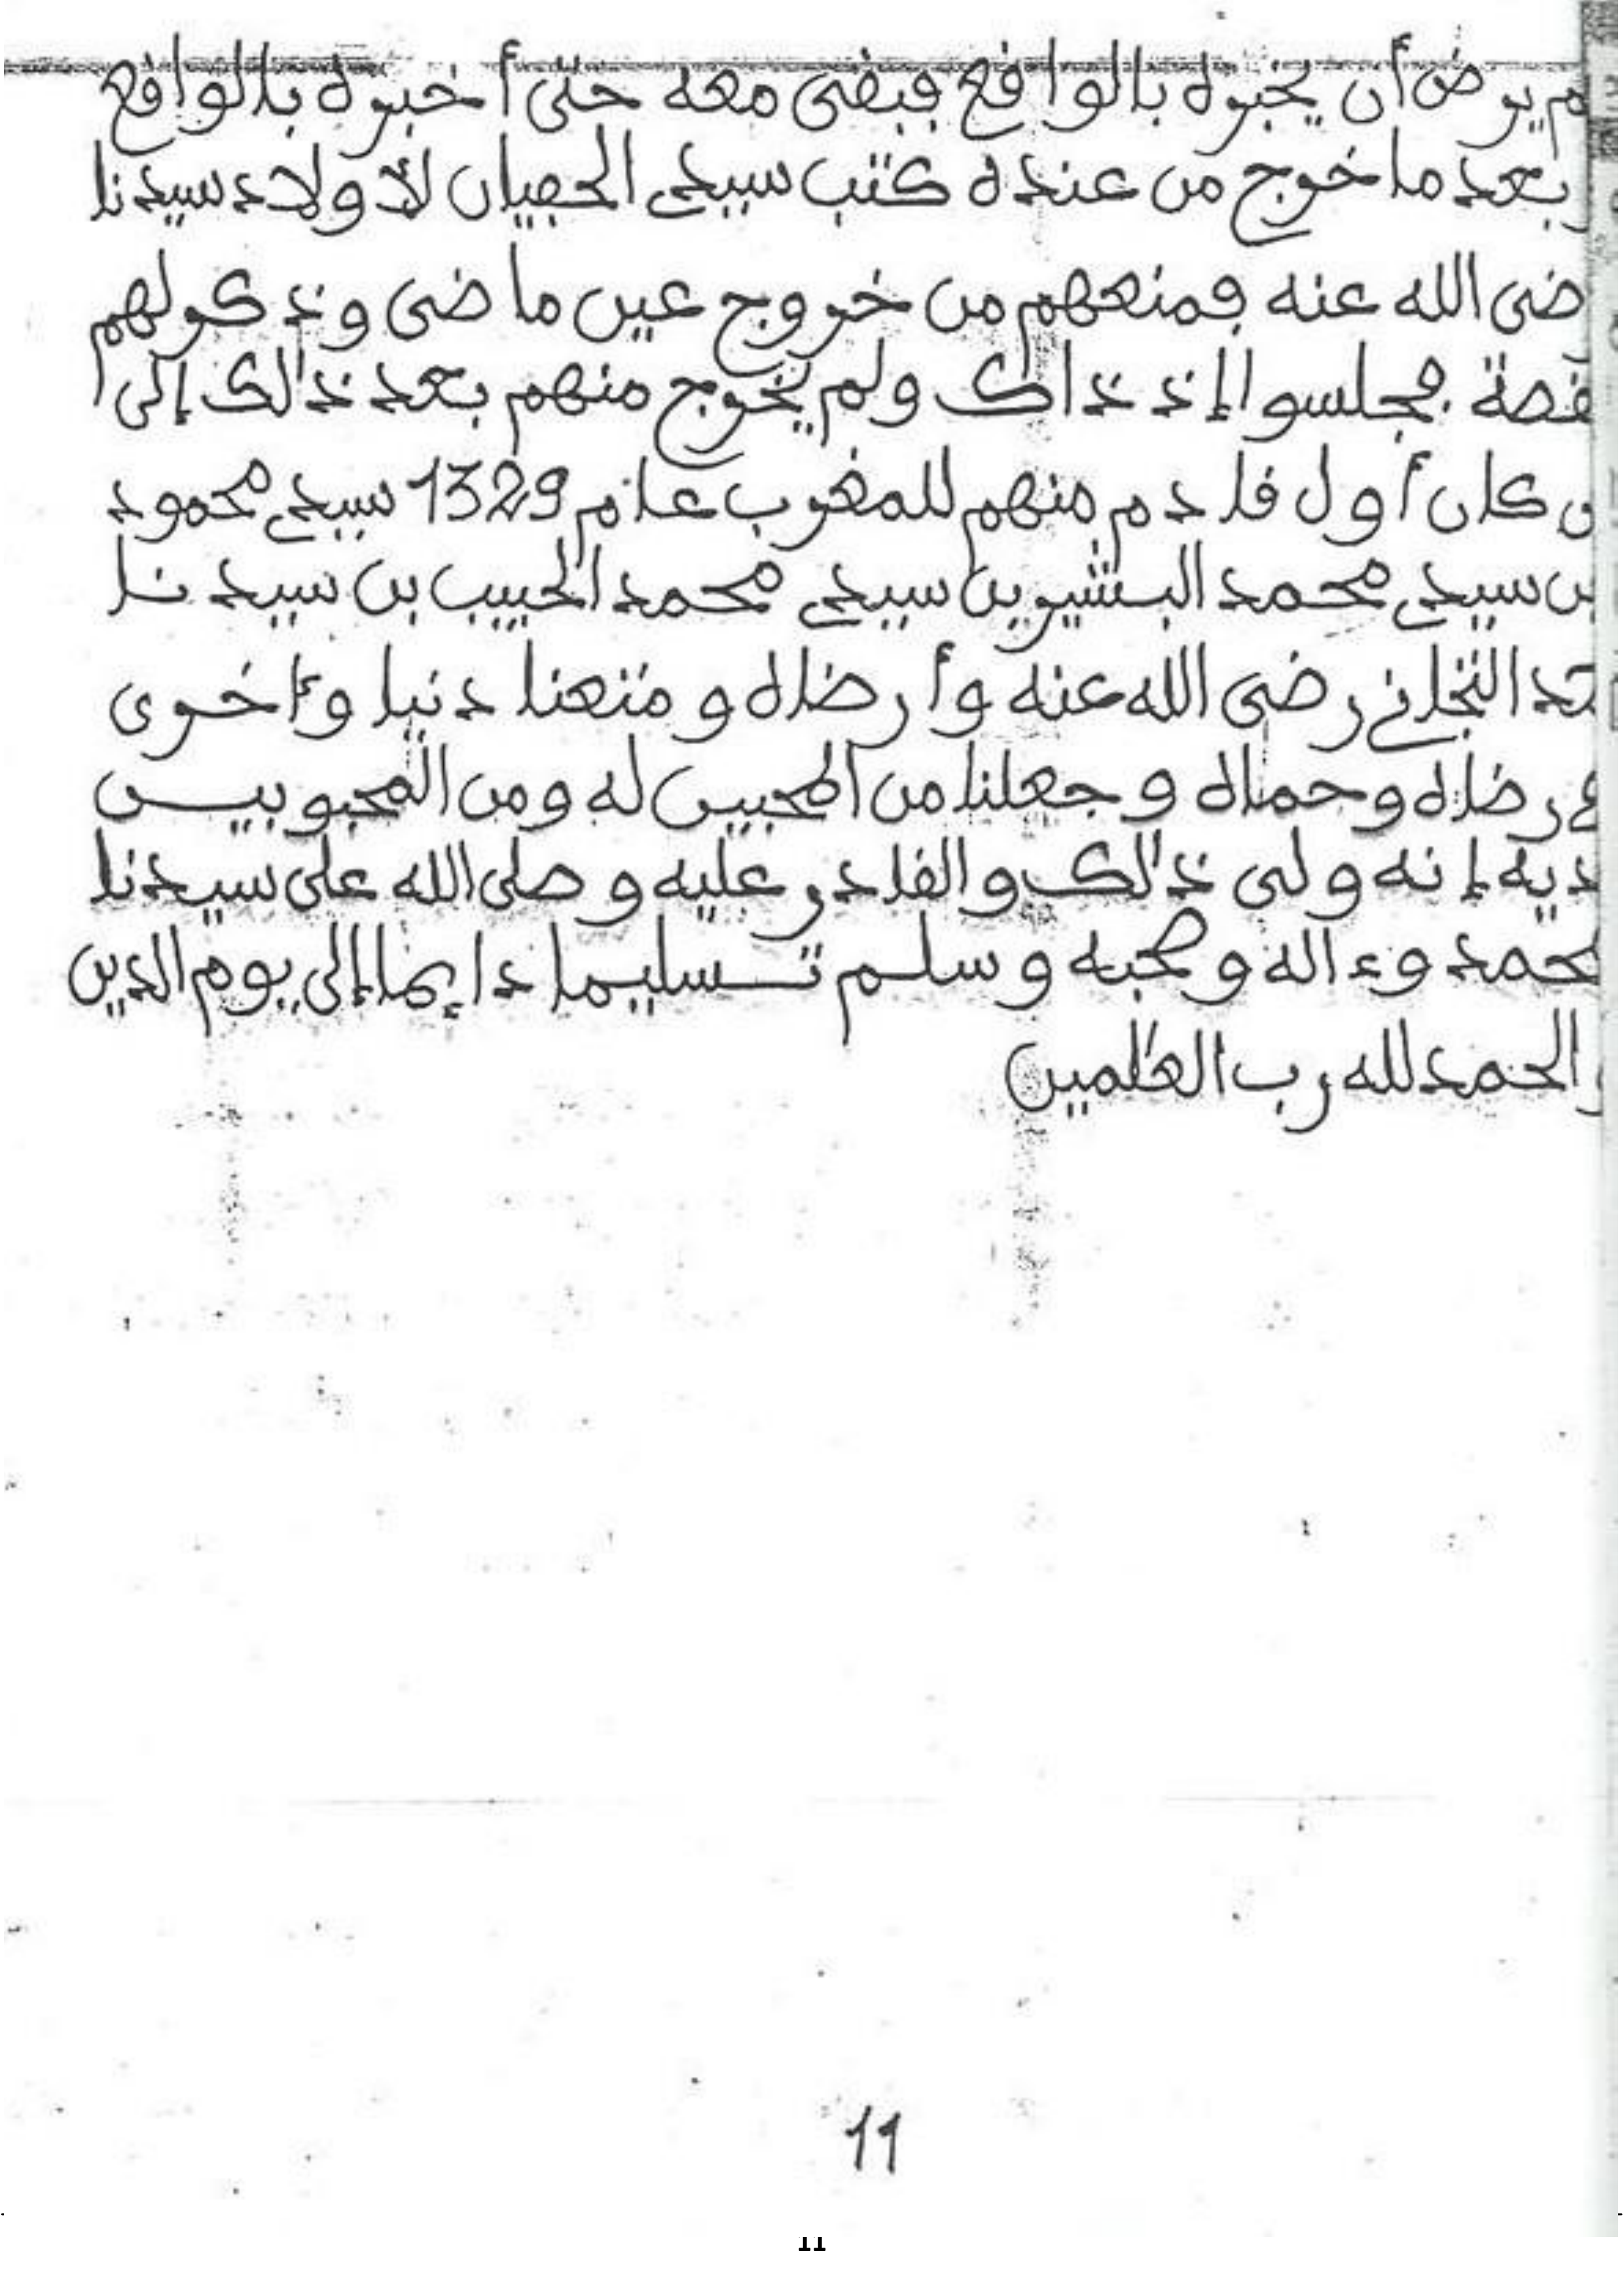 لم يرض أن يخبره بالواقع فبقى معه حتى أخبره بالواقع
وبعد ما خرج من عنده كتب سيدي الحصيان لأولاد سيدنا
رضى الله عنه فمنعهم من خروج عين ماضى وذكر لهم
القصة فجلسوا إذ ذاك ولم يخرج منهم بعد ذالك إلى
كان أول قادم منهم للمغرب عام 1329 سيدي محمود
بن سيدي محمد البشير بن سيدي محمد الحبيب بن سيدنا
التجاني رضى الله عنه وأرضاه ومتعنا دنيا وءاخرى
رضاه وحماه وجعلنا من المحبين له ومن المحبوبيـن
لديه إنه ولى ذالك والقادر عليه وصلى الله على سيدنا
محمد وءاله وصحبه وسلم تـسليما دايما إلى يوم الدين
والحمد لله رب العالمين
11
11